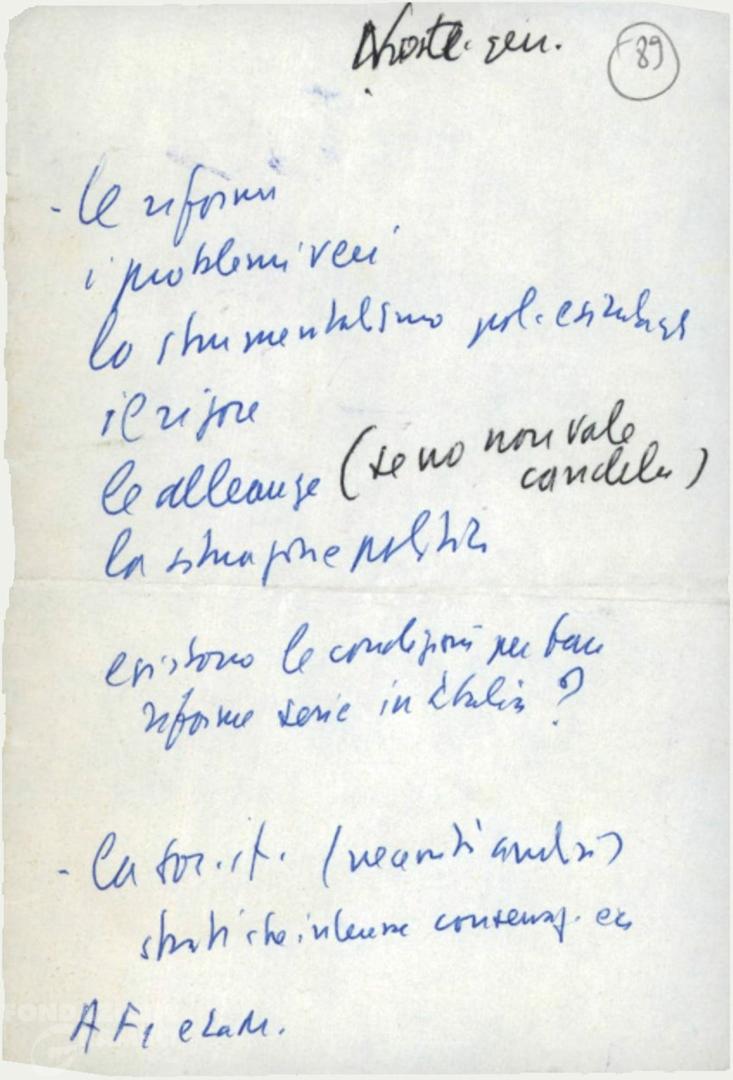 gen. 89
- le riforme
i problemi veri
lo strumentalismo pol. e sindacale
il rigore
le alleanze (se no non vale
candela)
la situazione politica
esistono le condizioni per fare
riforme serie in Italia?
- la soc. it. (recenti analisi)
strati che
A Fi
FOND